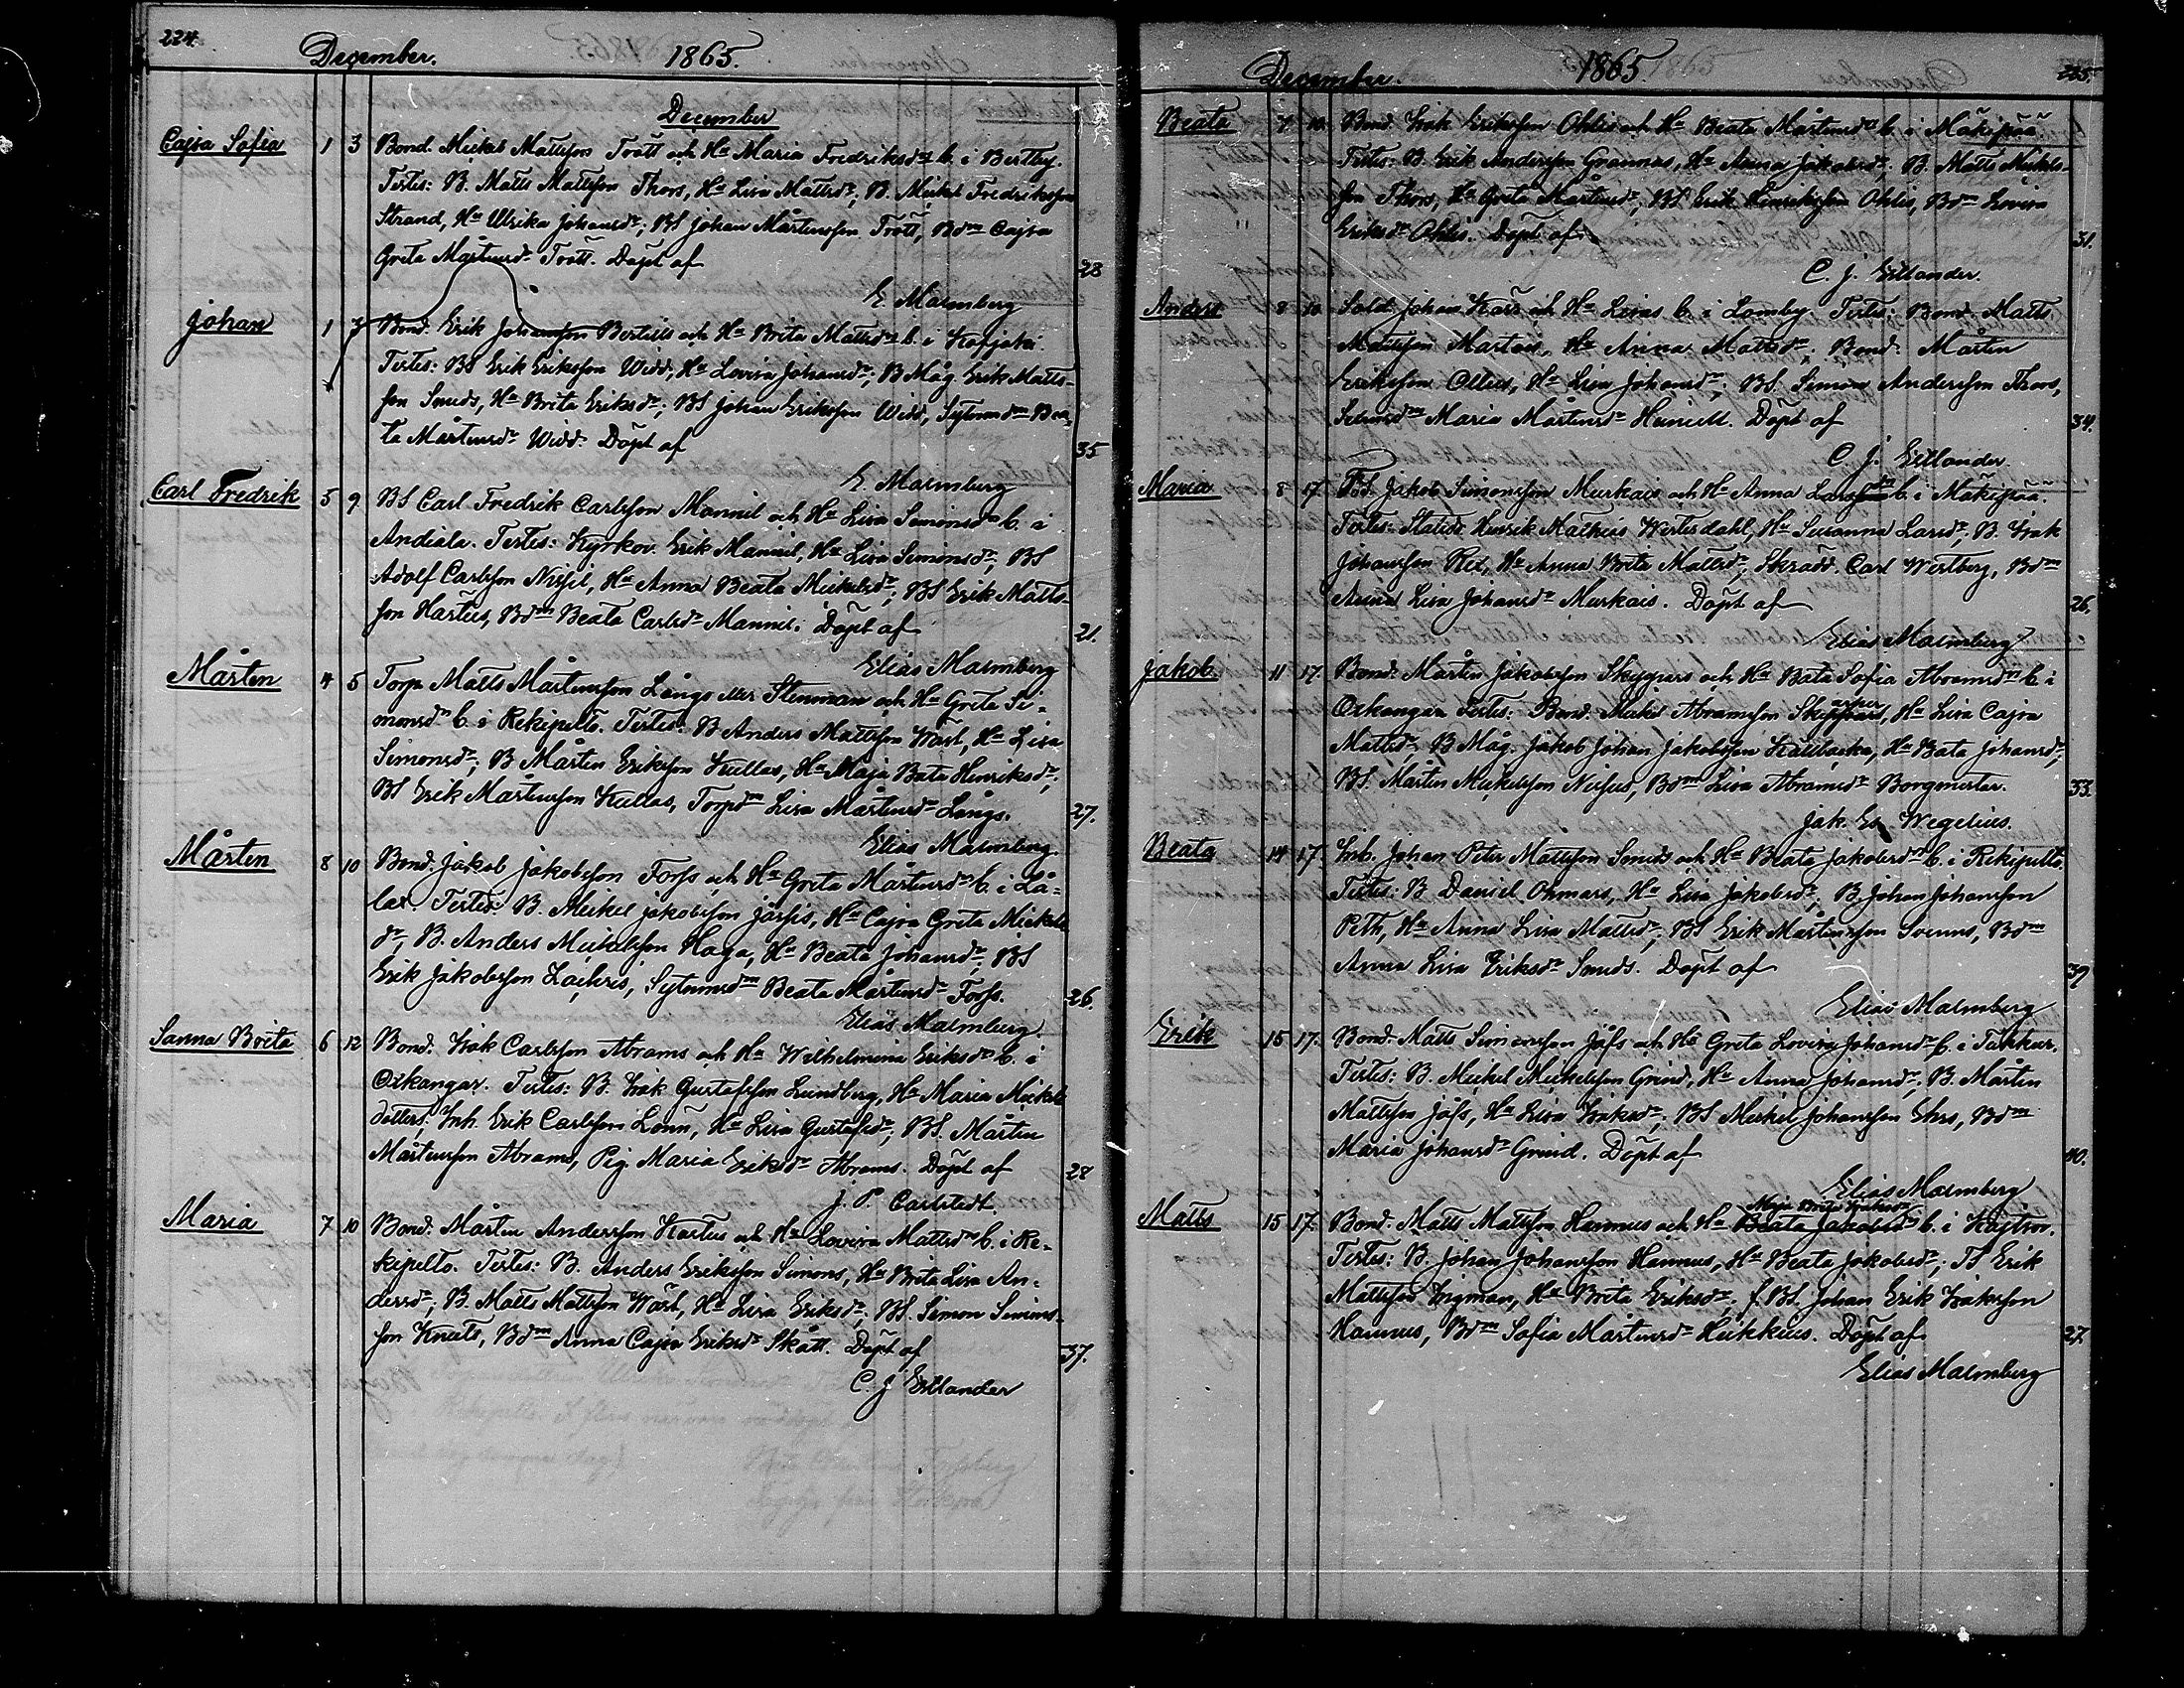 224.
December. 1865.
December
Cajsa Sofia 1 3 Bond. Mickel Mattsson Trött och Hu Maria Fredriksdr b. i Bertby.
Testes: B. Matts Mattsson Thors, Hu Lisa Mattsdr, B. Mickel Fredriksson
Strand, Hu Ulrika Johansdr, BS Johan Mårtensson Trött, Bdm Cajsa
Greta Mårtensdr Trött. Döpt af 28
E Malmberg
Johan 1 3 Bond. Erik Johansson Bertills och Hu Brita Mattsdr b. i Kofjoki.
Testes: BS Erik Eriksson Widd, Hu Lovisa Johansdr, B Måg Erik Matts-
son Smeds, Hu Brita Eriksdr, BS Johan Eriksson Widd, Sytnmsdm Bea-
ta Mårtensdr Widd. Döpt af 35
E Malmberg
Carl Fredrik 5 9 BS Carl Fredrik Carlsson Mannil och Hu Lisa Simonsdr b. i
Andiala. Testes: Kyrkov. Erik Mannil, Hu Lisa Simonsdr, BS
Adolf Carlsson Nissil, Hu Anna Beata Mickelsdr, BS Erik Matts-
son Hartus, Bdm Beata Carlsdr Mannil. Döpt af 21.
Elias Malmberg
Mårten 4 5 Torp. Matts Mårtensson Långs eller Stenman och Hu Greta Si-
monsdr b. i Rekipelto. Testes: B Anders Mattsson Wäst, Hu Lisa
Simonsdr, B Mårten Eriksson Kullas, Hu Maja Beata Henriksdr,
BS Erik Mårtensson Kullas, Torpdm Lisa Mårtensdr Långs. 27.
Elias Malmberg.
Mårten 8 10 Bond. Jakob Jakobsson Forss och Hu Greta Mårtensdr b. i Lå-
lax. Testes: B. Mickel Jakobsson Jossis, Hu Cajsa Greta Mickels
dr, B. Anders Mickelsson Haga, Hu Beata Johansdr, BS
Erik Jakobsson Lackris, Sytnmsdm Beata Mårtensdr Forss. 26.
Elias Malmberg.
Sanna Brita 6 12 Bond. Isak Carlsson Abrams och Hu Wilhelmina Eriksdr b. i
Oxkangar. Testes: B. Isak Gustafsson Lundberg, Hu Maria Mickels
dotter, Inh. Erik Carlsson Lönn, Hu Lisa Gustafsdr, BS. Mårten
Mårtensson Abrams, Pig. Maria Eriksdr Abrams. Döpt af 28
J. P. Carlstedt.
Maria 7 10 Bond. Mårten Andersson Kartus och Hu Lovisa Mattsdr b. i Re-
kipelto. Testes: B. Anders Eriksson Simons, Hu Brita Lisa An-
dersdr, B. Matts Mattsson Wäst, Hu Lisa Eriksdr, BS. Simon Simons-
son Knuts, Bdm Anna Cajsa Eriksdr Skått. Döpt af 37.
C. J Estlander
December 1865 225.
Beata 7 10 Bond. Isak Eriksson Ohlis och Hu Beata Mårtensdr b. i Mäkipää
Testes: B. Erik Andersson Grannas, Hu Anna Jakobsdr, B. Matts Mickels-
son Thors, Hu Greta Mårtensdr, BS Erik Henriksson Ohlis, Bdm Lovisa
Eriksdr Ohlis. Döpt af 31.
C. J. Estlander.
Anders 8 10 Sold. Johan Kars och Hu Lisas b. i Lomby. Testes: Bond. Matts
Mattsson Martois, Hu Anna Mattsdr, Bond. Mårten
Eriksson Ollus, Hu Lisa Johansdr, BS. Simon Andersson Thors,
Maria Mårtensdr Heinull. Döpt af 34.
C. J. Estlander.
Maria 8 17 Jakob Simonsson Murkais och Hu Anna b. i Mäkipää.
Testes: Henrik Mathias Westerdahl, Hu Susanna Larsdr, B. Isak
Johansson Rex, Hu Anna Brita Mattsdr, Skrädd. Carl Westberg, Bdm
Anna Lisa Johansdr Murkais. Döpt af 26.
Elias Malmberg
Jakob 11 17. Bond. Mårten Jakobsson Skeppars och Hu Beata Sofia Abramsdr b. i
Oxkangar Testes: Bond. Mickel Abramsson Skeppars, Hu Lisa Cajsa
Mattsdr, B Måg. Jakob Johan Jakobsson Kållbacka, Hu Beata Johansdr,
BS. Mårten Mickelsson Nissus, Bdm Lisa Abramsdr Borgmestar. 33.
Jak. Es. Wegelius.
Beata 14 17 Inh. Johan Peter Mattsson Smeds och Hu Beata Jakobsdr b. i Rekipelto.
Testes: B Daniel Okmars, Hu Lisa Jakobsdr, B Johan Johansson
Peth, Hu Anna Lisa Mattsdr, BS Erik Mårtensson Svenns, Bdm
Anna Lisa Eriksdr Smeds. Döpt af 39
Elias Malmberg
Erik 15 17. Bond. Matts Simonsson Jåfs och Hu Greta Lovisa Johansdr b. i Tuckur.
Testes: B. Mickel Mickelsson Grind, Hu Anna Johansdr, B. Mårten
Mattsson Jåfs, Hu Lisa Isaksdr, BS Mickel Johansson Ehrs, Bdm
Maria Johansdr Grind. Döpt af 40.
Elias Malmberg
Maja Brita Isaksdr
Matts 15 17. Bond. Matts Mattsson Hannus och Hu Beata Jakobsdr b. i Kaitsor.
Testes: B. Johan Johansson Hannus, Hu Beata Jakobsdr, TS Erik
Mattsson Ingman, Hu Brita Eriksdr, f. BS. Johan Erik Isaksson
Hannus, Bdm Sofia Mårtensdr Heikkius. Döpt af 27.
Elias Malmberg